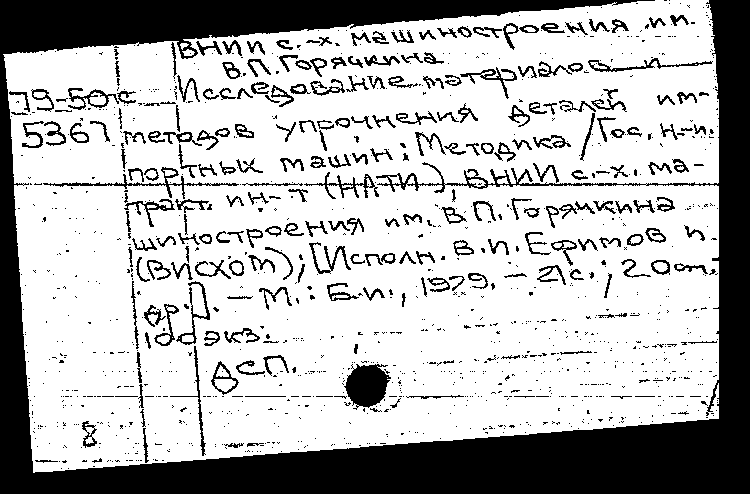 ВНИИ с.-х. машиностроения им.
В.П.Горячкина
79-50с Исследование материалов и
5367 методов упрочнения деталей им-
портных машин: Методика / Гос. н.-и.
тракт. ин-т (НАТИ), ВНИИ с.-х. ма-
шиностроения им. В.П.Горячкина
(ВИСХОМ); [Исполн. В.П. Ефимов и
др.]. - М.: Б.и., 1979. - 21с.; 20см.
100экз.
ДСП.
8